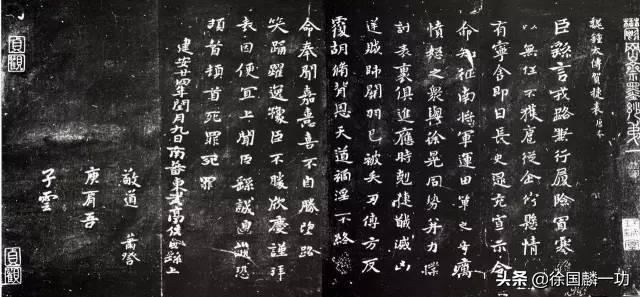 魏鍾太傅賀捷表
臣繇言戎路兼行履險冒寒
以無任不獲扈從企佇懸情
有寧舍即日長史逯充宣示令
命知征南將軍運田單之奇厲
憤怒之衆與徐晃同勢并力撲
討表裏俱進應時剋捷馘滅凶
逆賊帥關羽已被矢刃傅方反
覆胡脩背恩天道禍淫不終
命奉聞嘉憙喜不自勝望路
笑踊躍逸豫臣不勝欣慶謹拜
表因便宜上聞臣繇誠惶誠恐
頓首頓首死罪死罪
建安廿四年閏月九日南蕃東武亭侯臣繇上
敬道
庾肩吾
子雲
貞觀
貞觀
头条 @徐国麟一功